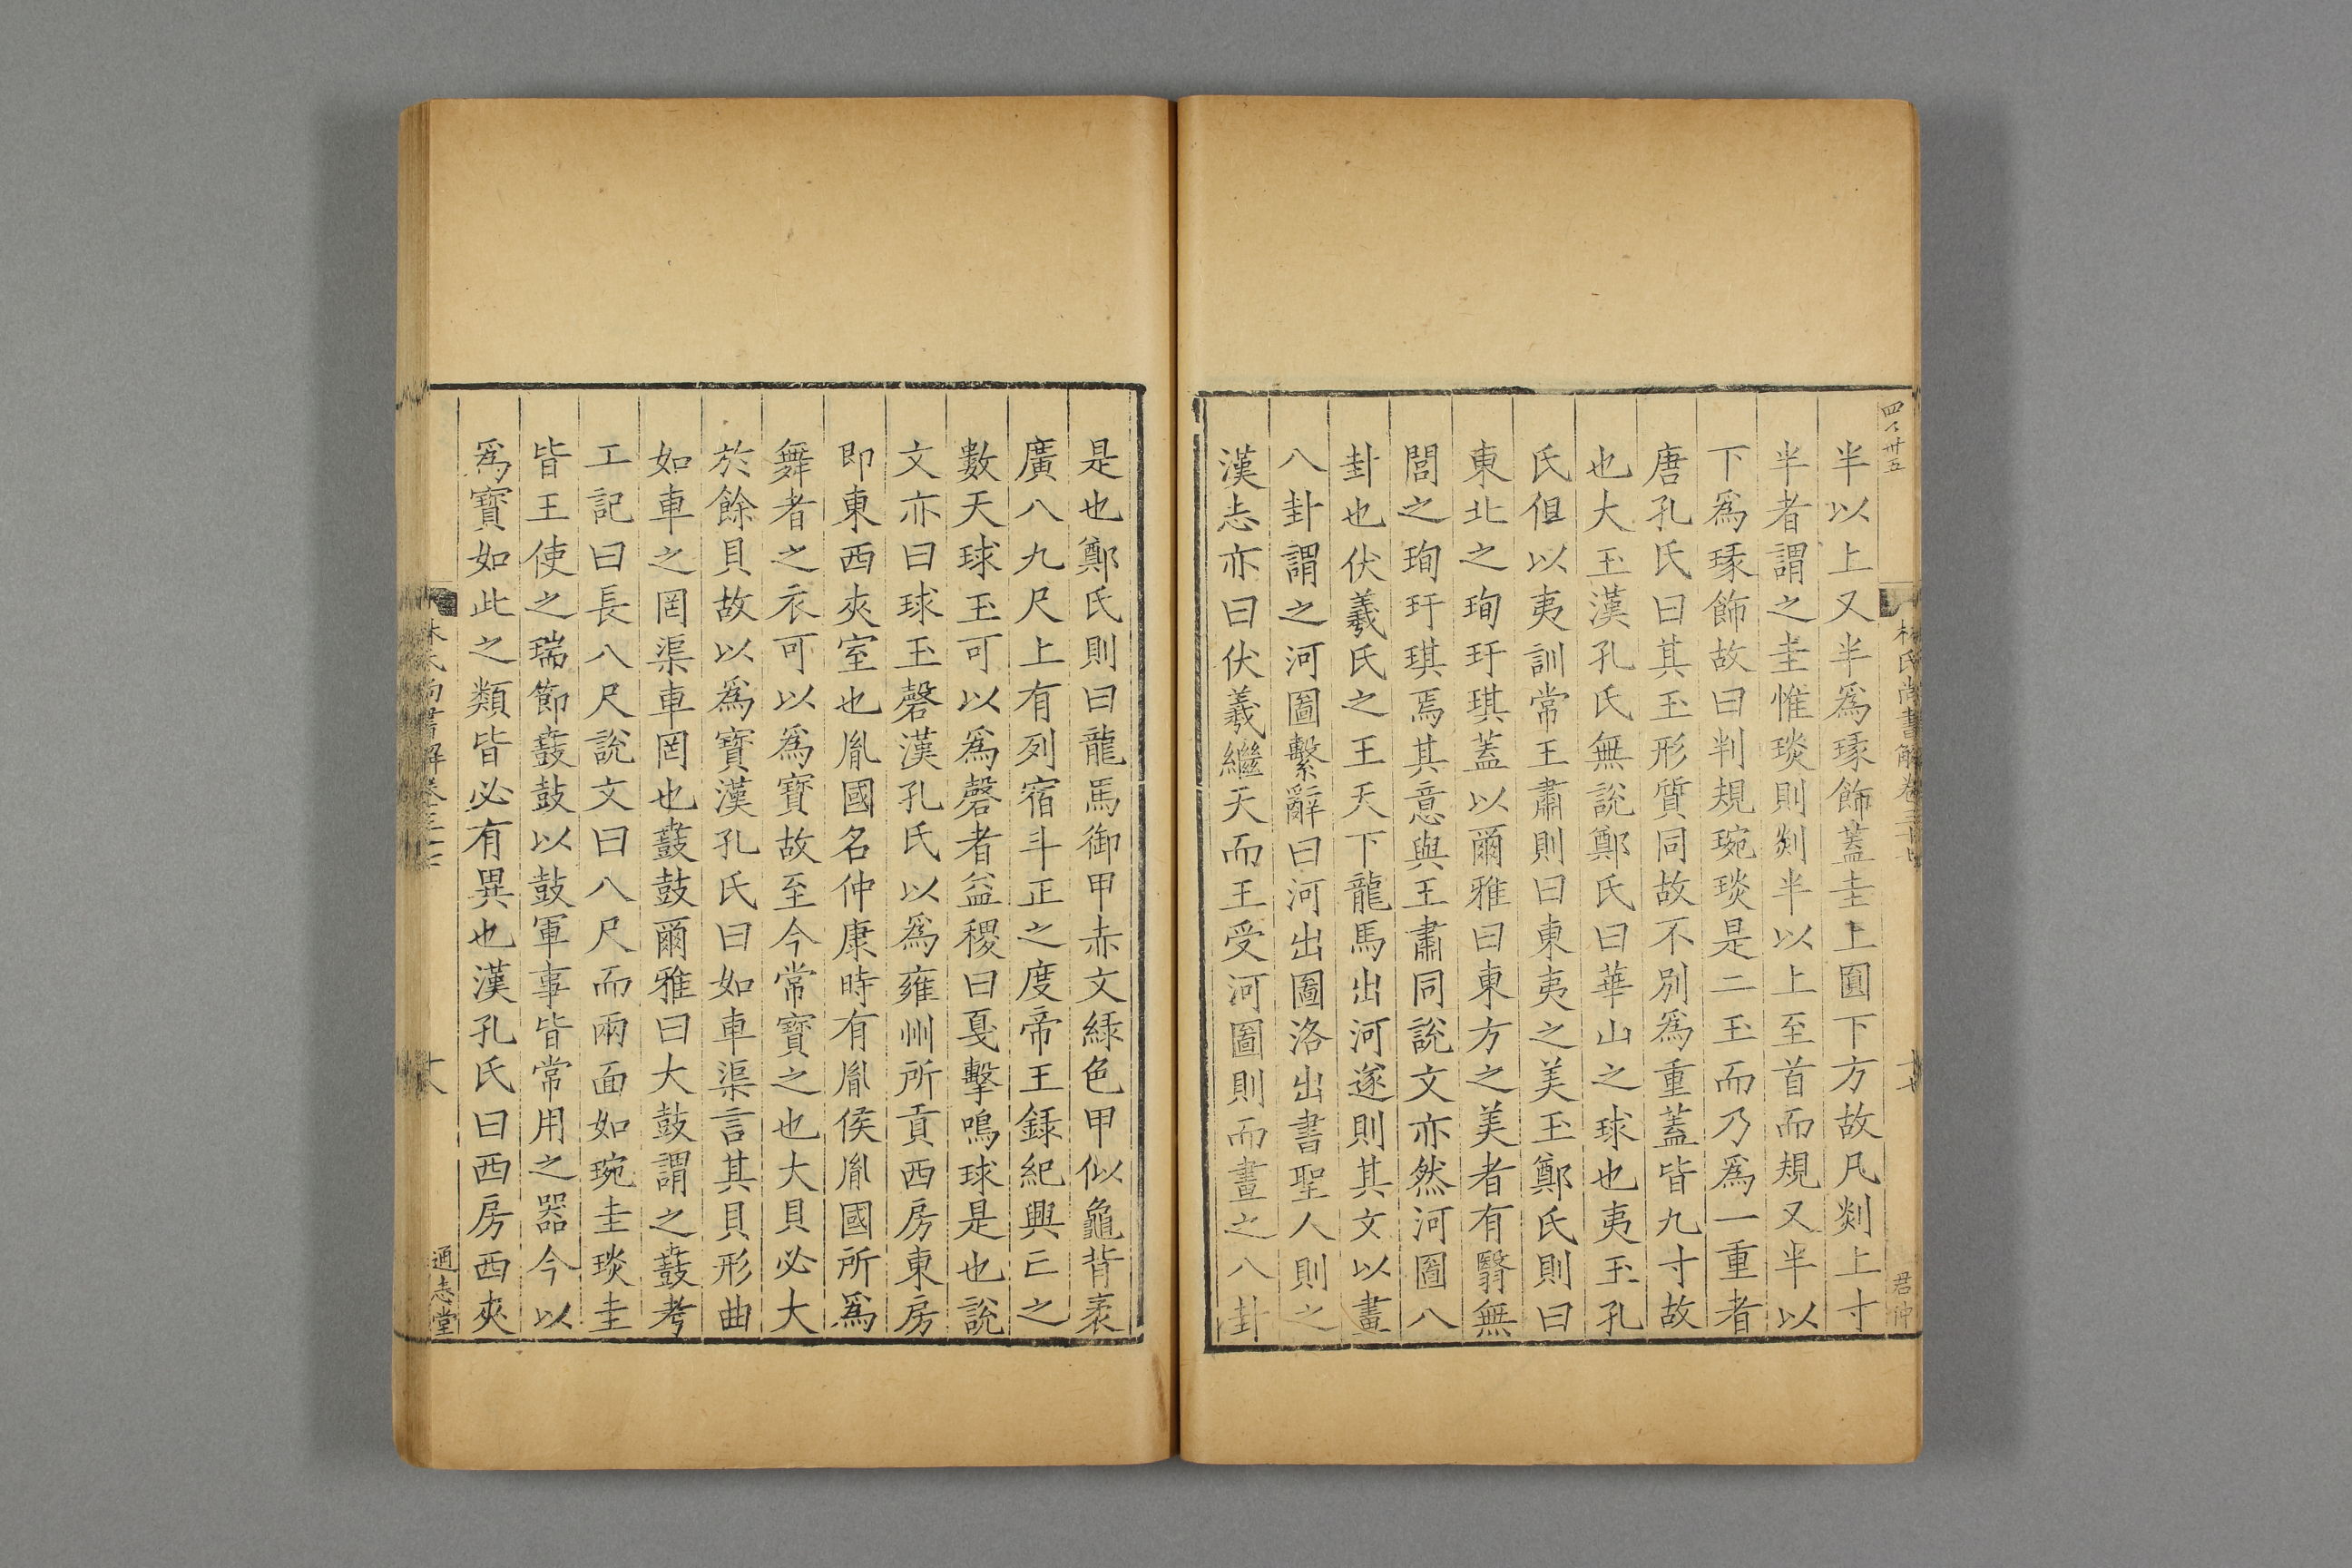 四百卅五
林氏尚書解卷三十七
十七
君仲
半以上又半爲瑑飾蓋圭上圓下方故凡剡上寸
半者謂之圭惟琰則剡半以上至首而規又半以
下爲瑑飾故曰判規琬琰是二玉而乃爲一重者
唐孔氏曰其玉形質同故不別爲重蓋皆九寸故
也大玉漢孔氏無說鄭氏曰華山之球也夷玉孔
氏但以夷訓常王肅則曰東夷之美玉鄭氏則曰
東北之珣玗琪蓋以爾雅曰東方之美者有醫無
閭之珣玗琪焉其意與王肅同說文亦然河圖八
卦也伏羲氏之王天下龍馬出河遂則其文以畫
八卦謂之河圖繫辭曰河出圖洛出書聖人則之
漢志亦曰伏羲繼天而王受河圖則而畫之八卦
是也鄭氏則曰龍馬御甲赤文綠色甲似龜背袤
廣八九尺上有列宿斗正之度帝王錄紀興亡之
數天球玉可以爲磬者益稷曰戛擊鳴球是也說
文亦曰球玉磬漢孔氏以爲雍州所貢西房東房
即東西夾室也胤國名仲康時有胤侯胤國所爲
舞者之衣可以爲寶故至今常寶之也大貝必大
於餘貝故以爲寶漢孔氏曰如車渠言其貝形曲
如車之罔渠車罔也鼖鼓爾雅曰大鼓謂之鼖考
工記曰長八尺說文曰八尺而兩面如琬圭琰圭
皆王使之瑞節鼖鼓以鼓軍事皆常用之器今以
爲寶如此之類皆必有異也漢孔氏曰西房西夾
林氏尚書解卷三十七
十八
通志堂